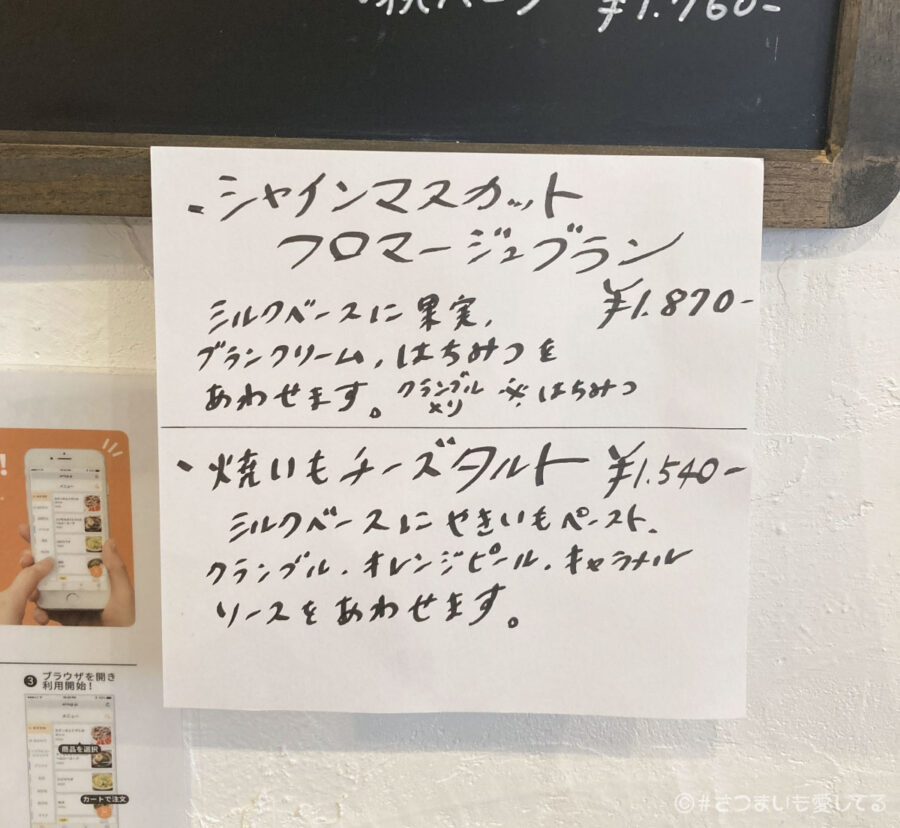 ¥1.760-
・シャインマスカット
フロマージュブラン
¥1.870-
ミルクベースに果実、
ブランクリーム、はちみつを
あわせます。クランブル入り ※はちみつ
・焼いもチーズタルト ¥1.540-
ミルクベースにやきいもペースト、
クランブル、オレンジピール、キャラメル
ソースをあわせます。
メニュー
❸ ブラウザを開き
利用開始!
メニュー
商品を選択
カートで注文
©#さつまいも愛してる